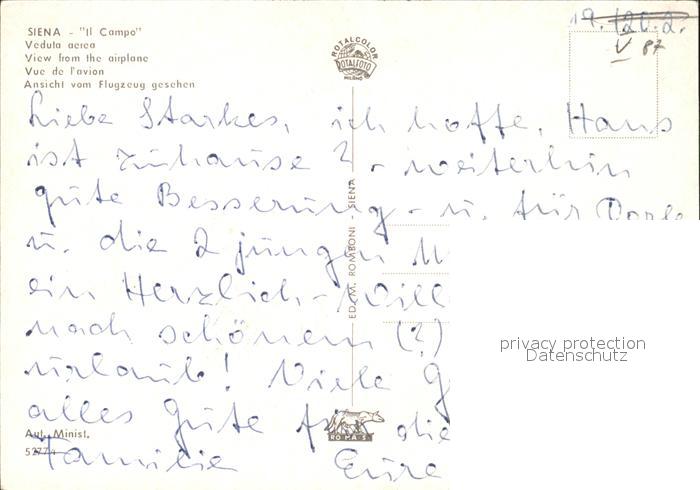 SIENA - "Il Campo"
Vedula aerea
View from the airplane
Vue de l'avion
Ansicht vom Flugzeug gesehen
ROTALCOLOR
ROTALFOTO
MILANO
19.
V 87
Liebe Starkes, ich hoffe, Hans
ist zuhause? - weiterhin
gute Besserung - u. für
u. die 2 jungen
ein Herzlich-Will
nach schönem (?)
urlaub! Viele G
alles Gute für die
Familie Eure
ED. M. ROMBONI - SIENA
Aut. Minist.
ROMAS
privacy protection
Datenschutz